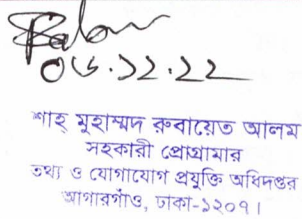 ০৬.১২.২২
শাহ্ মুহাম্মদ রুবায়েত আলম
সহকারী প্রোগ্রামার
তথ্য ও যোগাযোগ প্রযুক্তি অধিদপ্তর
আগারগাঁও, ঢাকা-১২০৭।